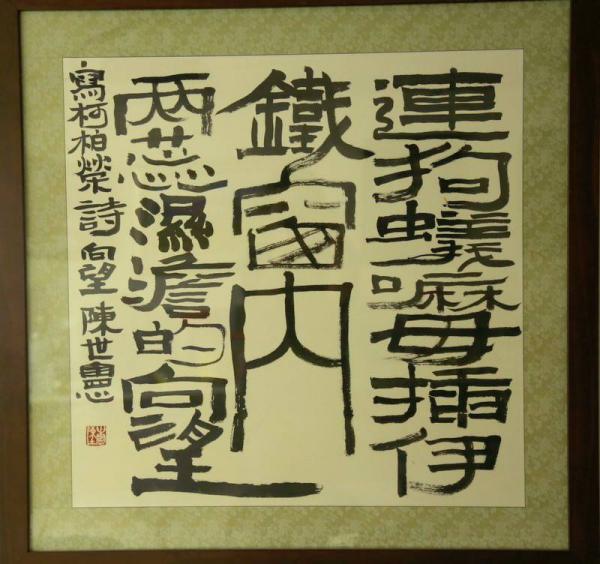 連狗蟻嘛毋插伊
鐵窗內
两蕊濕澹的向望
寫柯柏榮詩向望 陳世憲